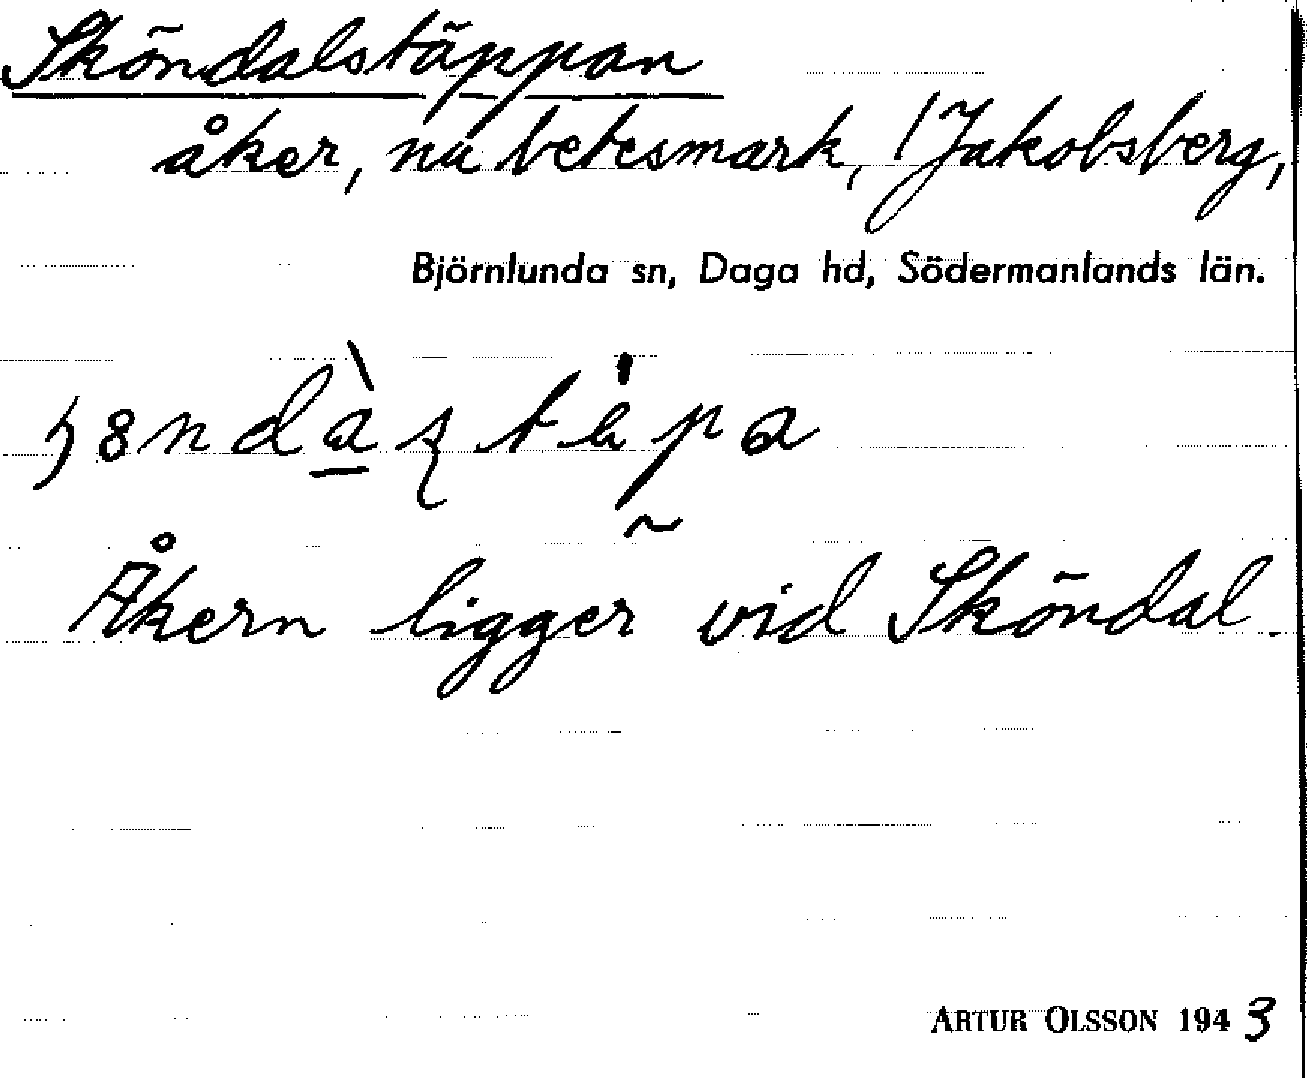 Sköndalstäppan
åker, nu betesmark, /Jakobsberg,
Björnlunda sn, Daga hd, Södermanlands län.
Åkern ligger vid Sköndal
ARTUR OLSSON 1943